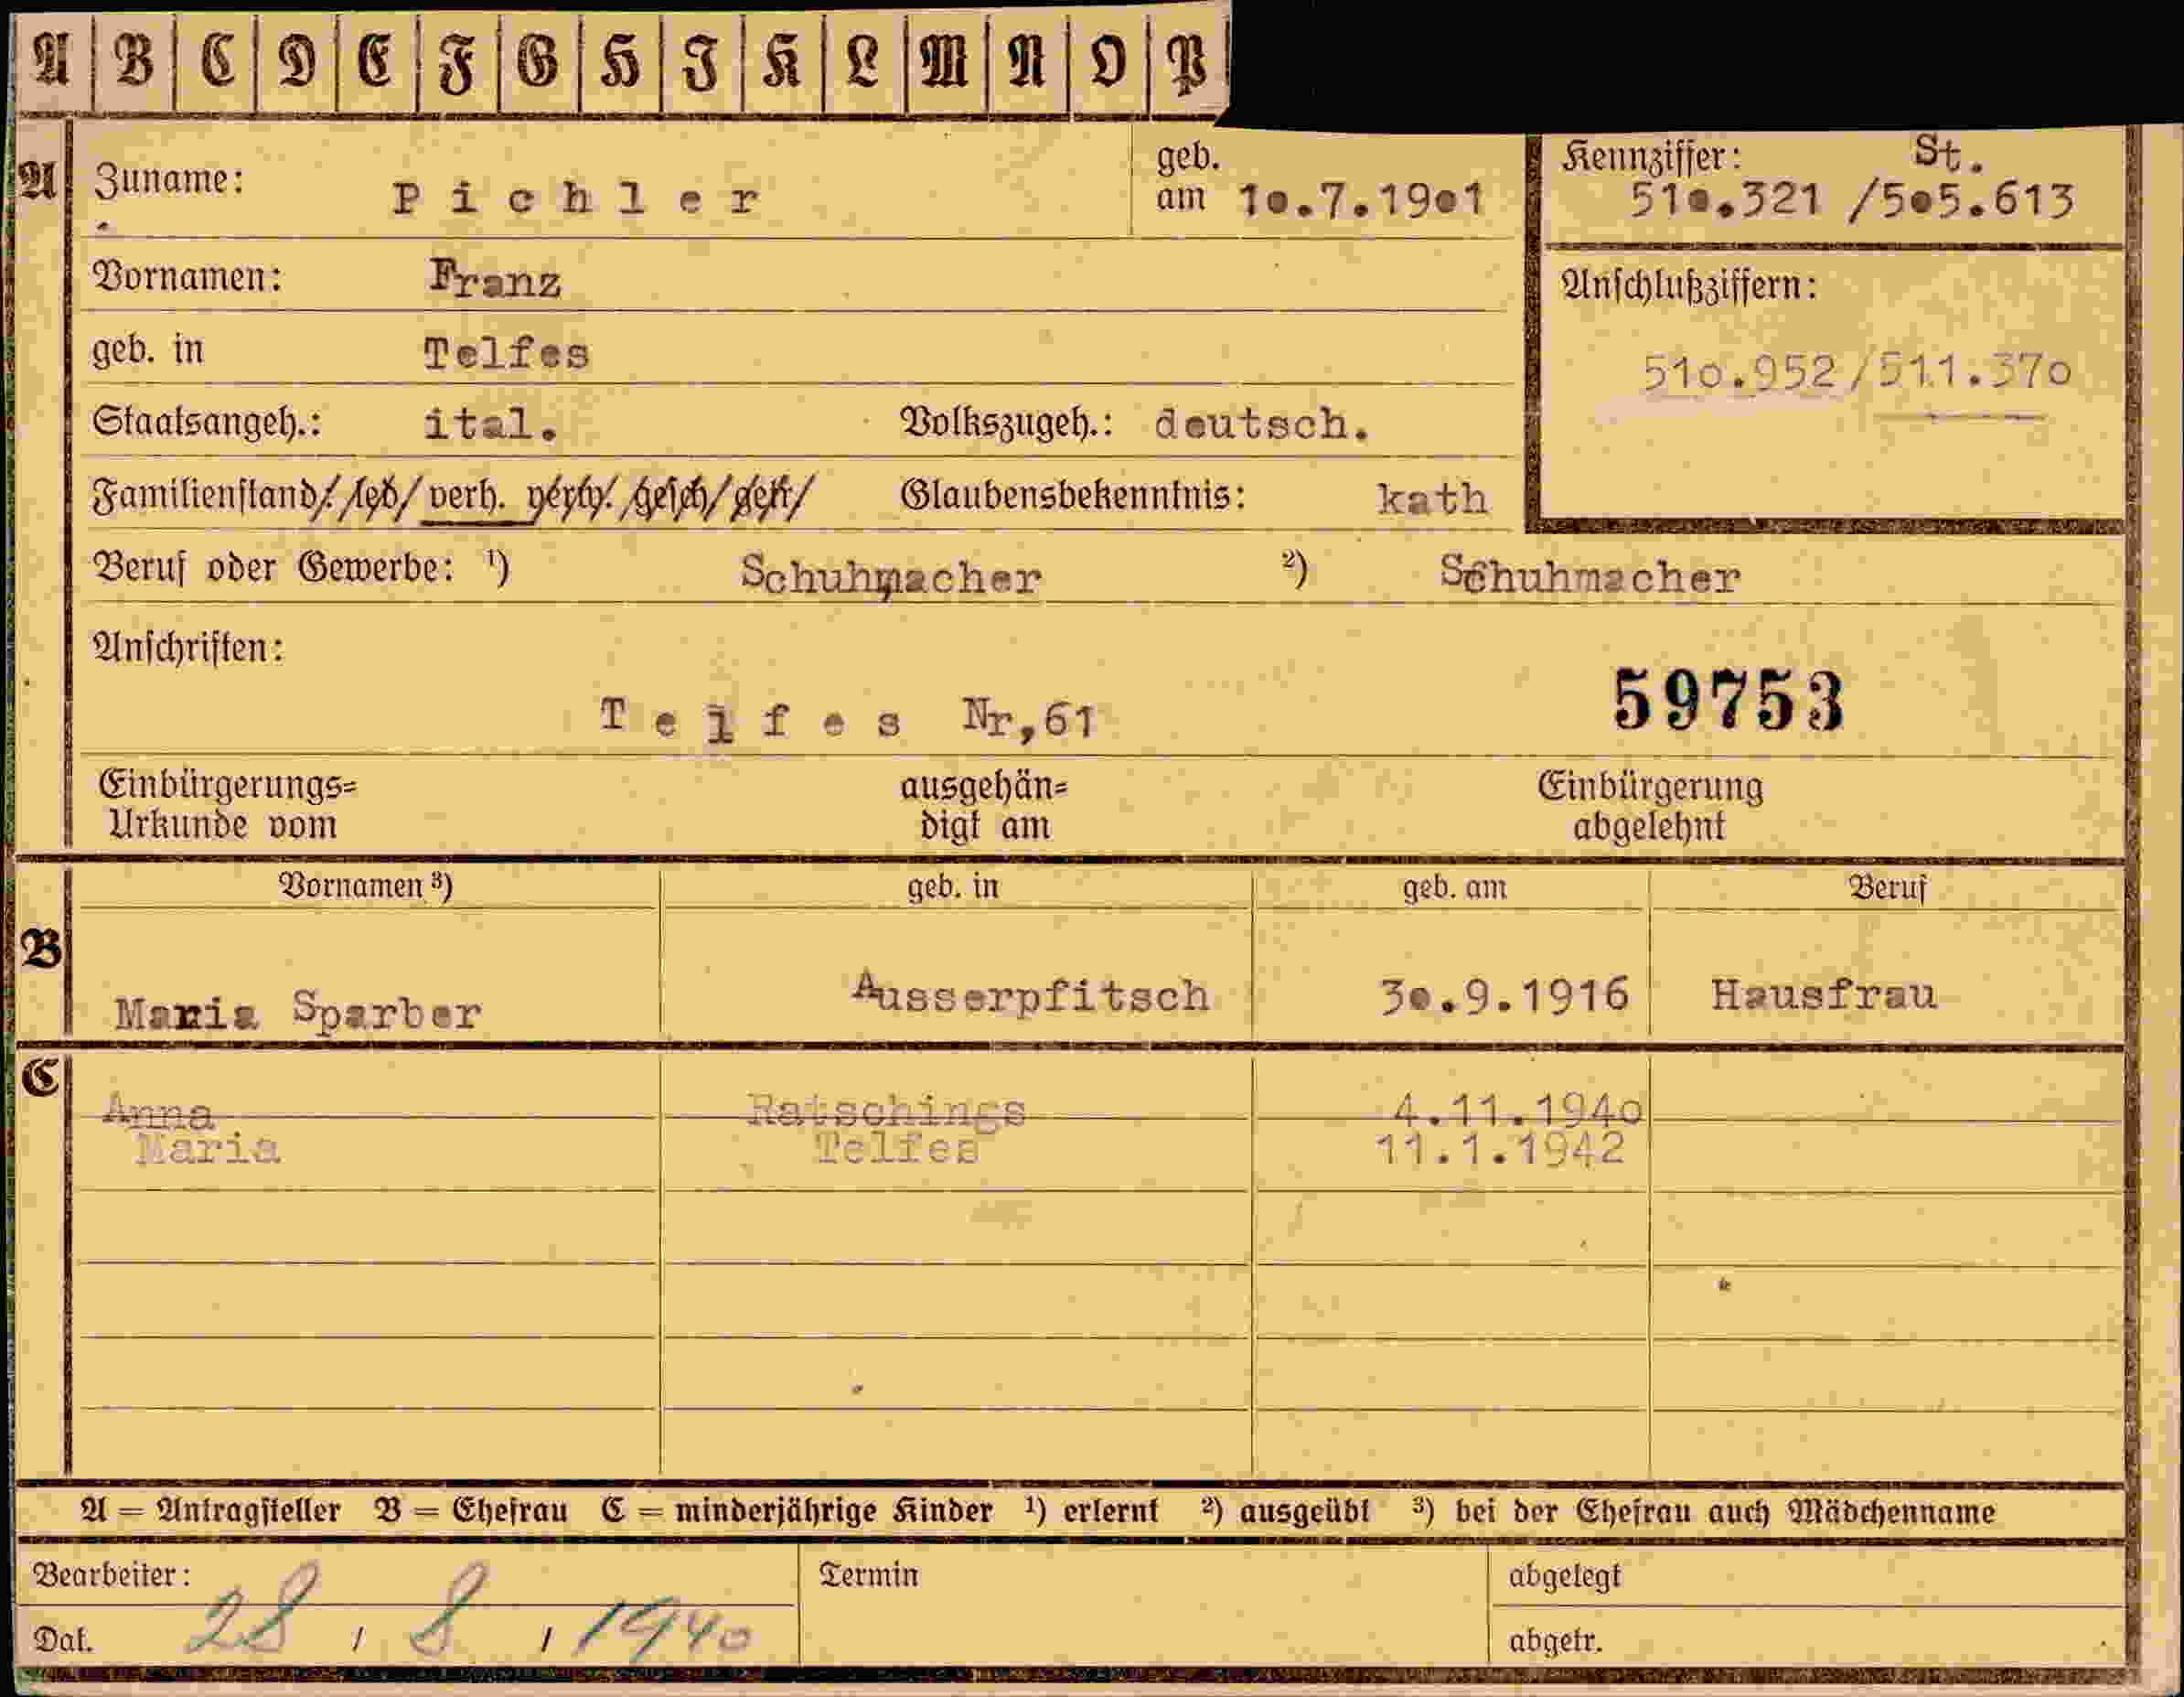 A B C D E F G H I K L M N O P
A Zuname: Pichler geb. am 10.7.1901
Kennziffer: St. 510.321 /505.613
Vornamen: Franz
Anschlußziffern:
geb. in Telfes
510.952/511.370
Staatsangeh.: ital. Volkszugeh.: deutsch.
Familienstand: led. verh. verw. gesch. getr. Glaubensbekenntnis: kath
Beruf oder Gewerbe: ¹) Schuhmacher ²) Schuhmacher
Anschriften:
Telfes Nr,61
59753
Einbürgerungs= ausgehän= Einbürgerung
Urkunde vom digt am abgelehnt
Vornamen ³) geb. in geb. am Beruf
B
Maria Sparber Ausserpfitsch 30.9.1916 Hausfrau
C
Anna Ratschings 4.11.1940
Maria Telfes 11.1.1942
A = Antragsteller B = Ehefrau C = minderjährige Kinder ¹) erlernt ²) ausgeübt ³) bei der Ehefrau auch Mädchenname
Bearbeiter: Termin abgelegt
Dat. 28 / 8 / 1940 abgetr.